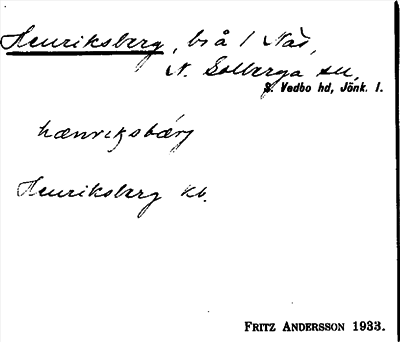 Henriksberg, bs å 1 Näs,
N. Solberga sn,
S. Vedbo hd, Jönk. l.
hænriksbärj
Henriksberg kb.
FRITZ ANDERSSON 1933.